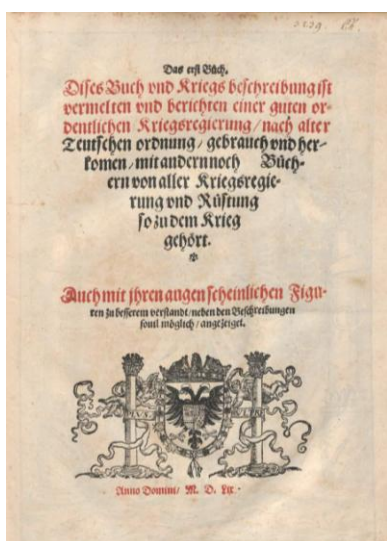 Das erst Buͤch.
Dises Buch vnd Kriegs beschreibung ist
vermelten vnd berichten einer guten or-
dentlichen Kriegsregierung/ nach alter
Teutschen ordnung/ gebrauch vnd her-
komen/ mit andern noch Buͤch-
ern von aller Kriegsregie-
rung vnd Ruͤstung
so zu dem Krieg
gehoͤrt.
Auch mit jhren augenscheinlichen Figu-
ren zu besserem verstandt/ neben den Beschreibungen
souil moͤglich/ angezeiget.
PLVS
VLTRE
Anno Domini/ M. D. Lix.